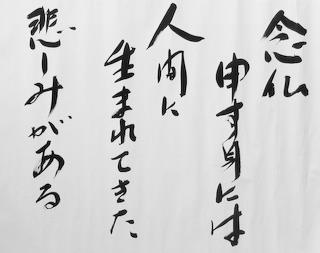 念仏
申す身には
人間に
生まれてきた
悲しみがある